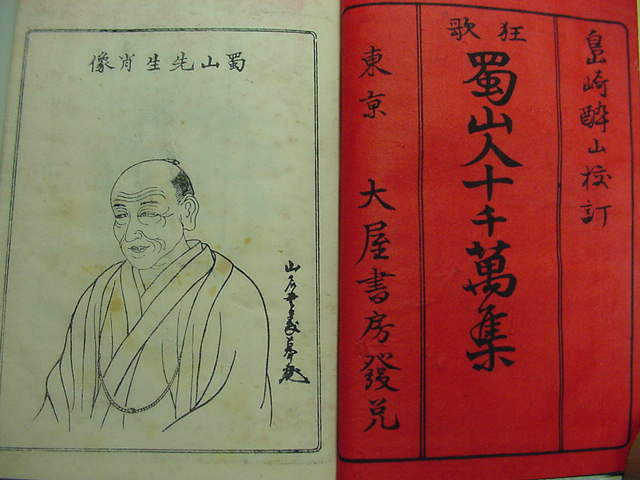 島崎酔山校訂
狂歌
蜀山人十千萬集
東京 大屋書房發兌
蜀山先生肖像